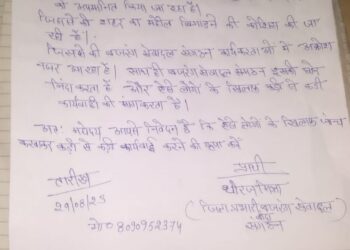 को अपमानित किया जा रहा है।
जिससे की शहर का माहौल बिगाड़ने की कोशिश की जा
रही है।
जिससे की बजरंग सेवादल संगठन कार्यकर्ताओं में आक्रोश
नजर आ रहा है। साथ ही बजरंग सेवादल संगठन इसकी घोर
निंदा करता है और ऐसे लोगो के खिलाफ कड़ी से कड़ी
कार्यवाही की मांग करता है।
अतः महोदय आपसे निवेदन है कि ऐसे लोगो के खिलाफ
करवाकर कड़ी से कड़ी कार्यवाई करने की कृपा करें
तारीख प्रार्थी
29/08/25
(जिला प्रभारी बजरंग सेवादल
संगठन
मो० 8090952374